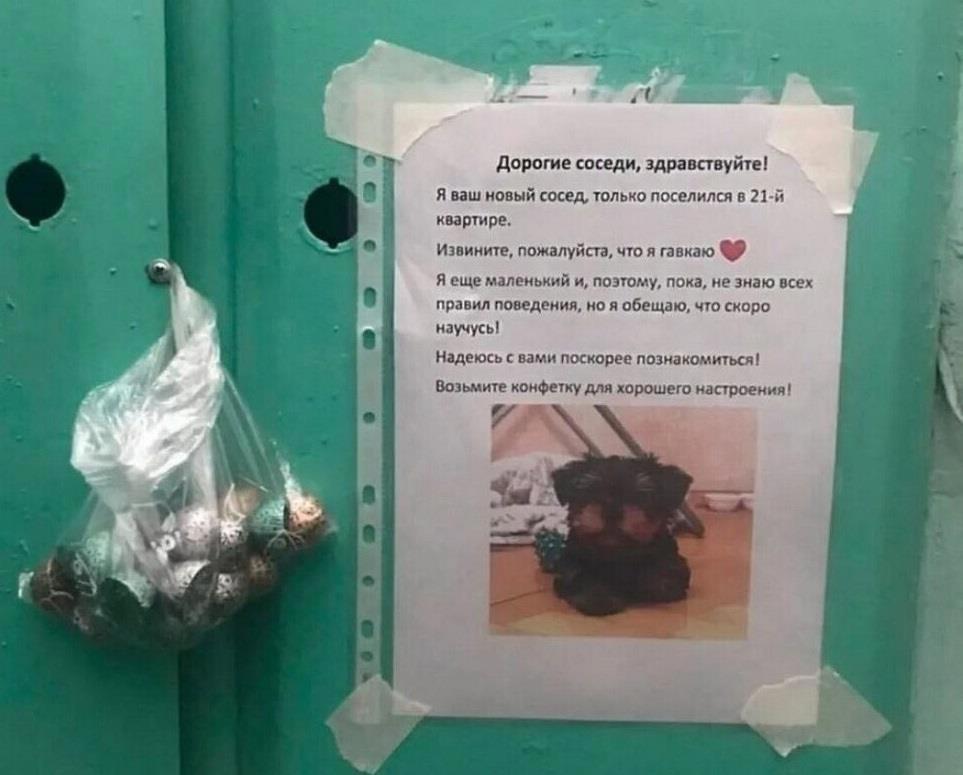 Дорогие соседи, здравствуйте!
Я ваш новый сосед, только поселился в 21-й
квартире.
Извините, пожалуйста, что я гавкаю ❤
Я еще маленький и, поэтому, пока, не знаю всех
правил поведения, но я обещаю, что скоро
научусь!
Надеюсь с вами поскорее познакомиться!
Возьмите конфетку для хорошего настроения!